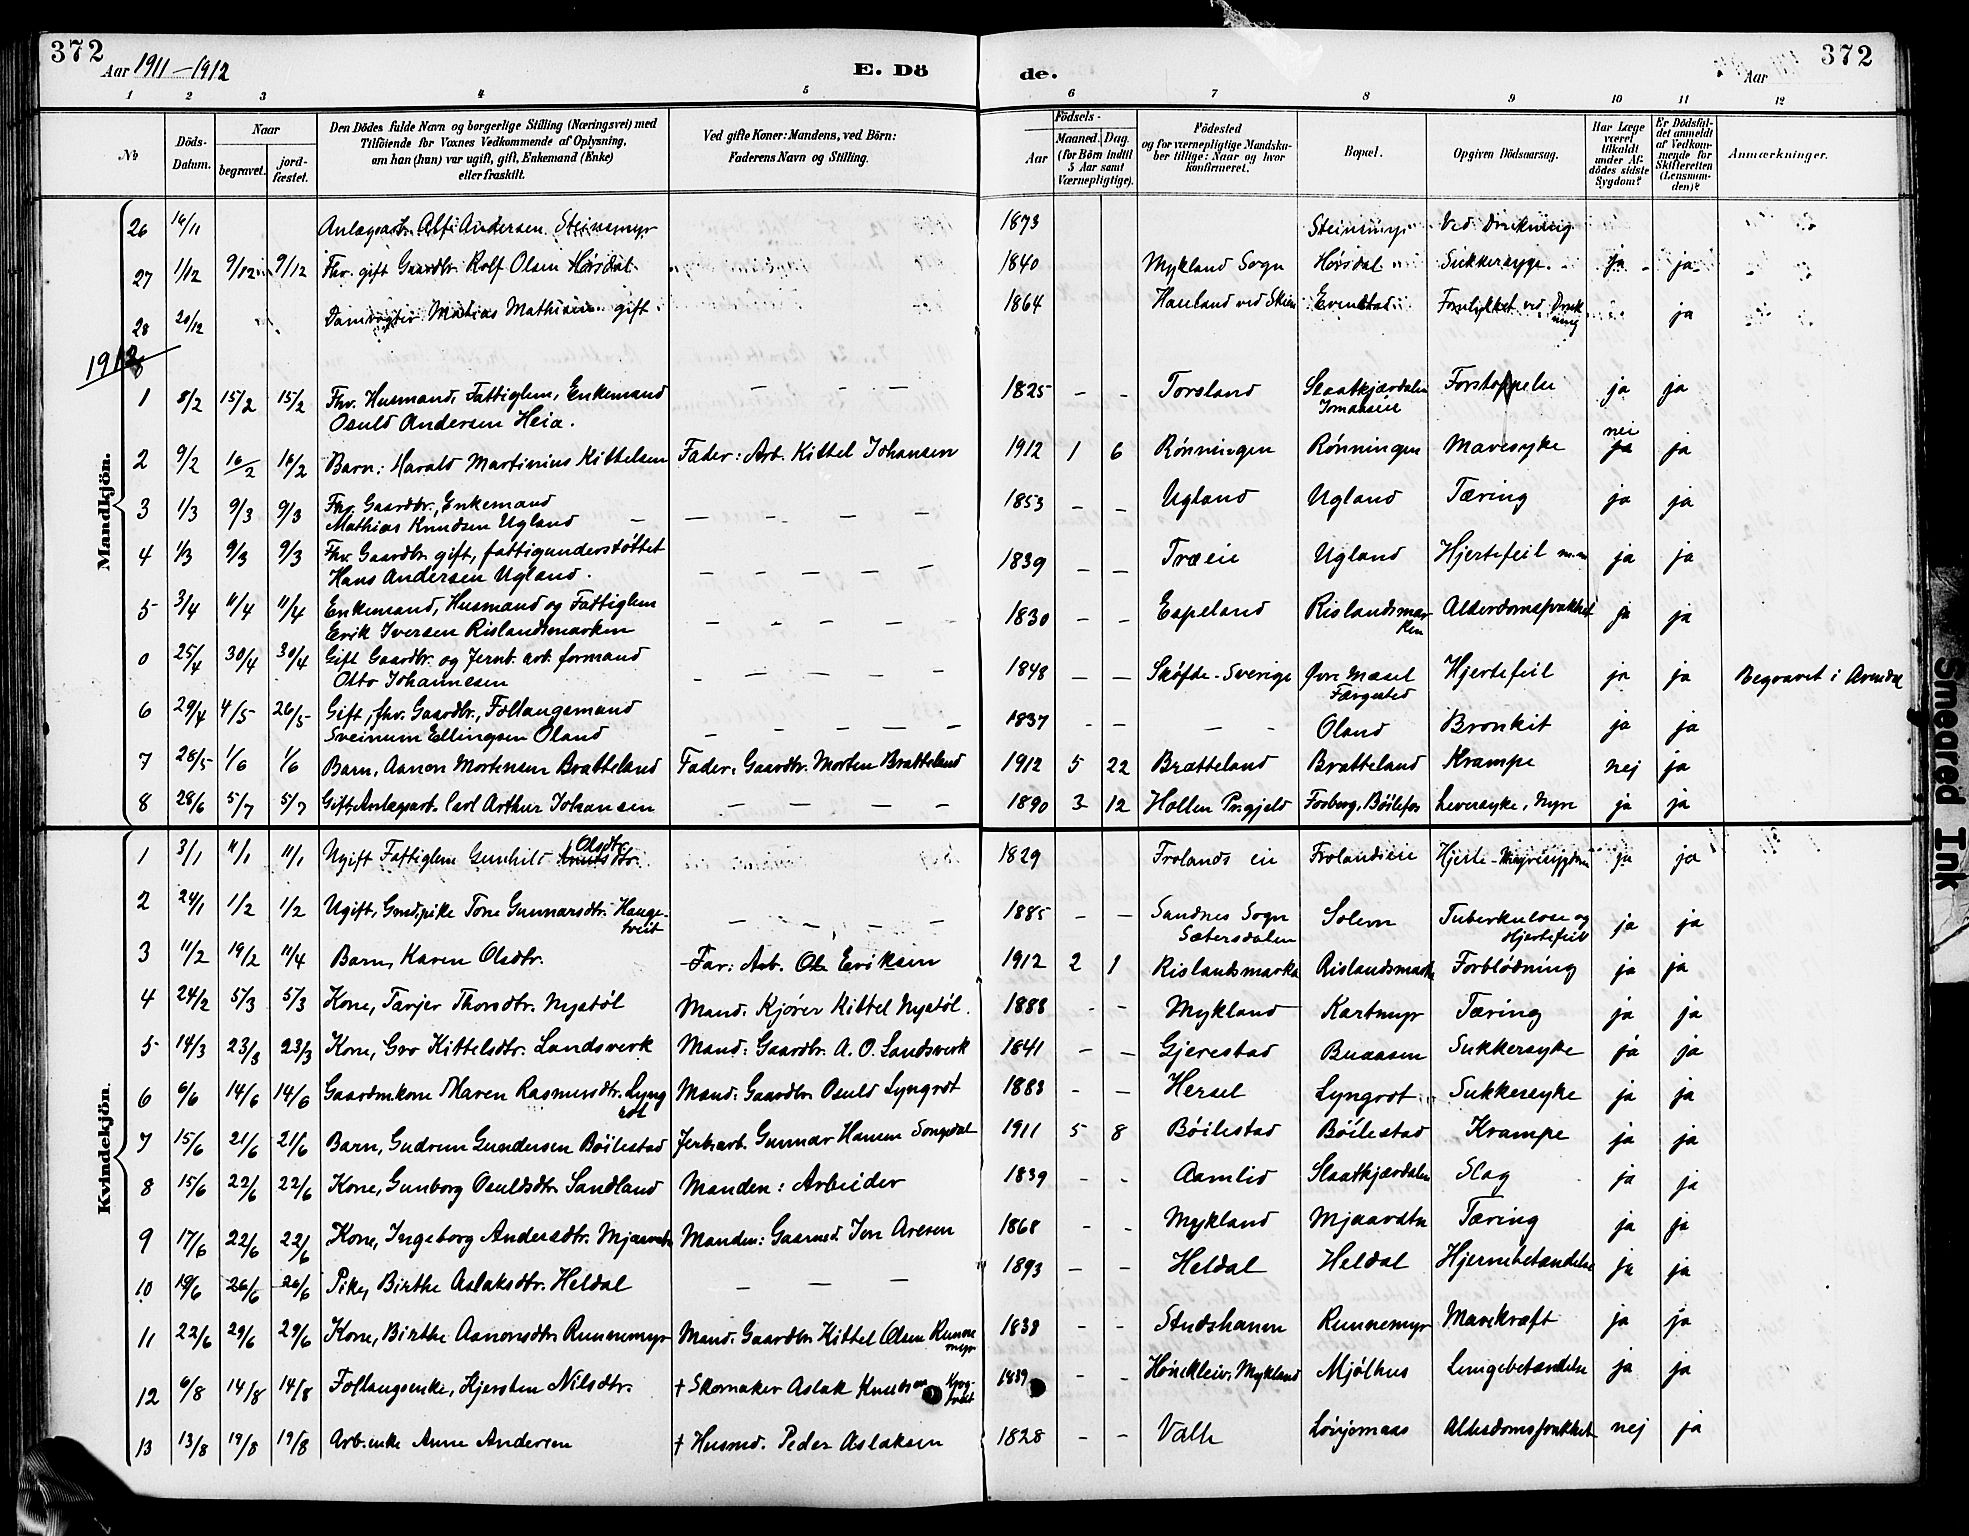 372
Aar 1911–1912
E. Dö
de.
Aar
372
1 2 3 4 5 6 7 8 9 10 11 12
No
Döds-Datum.
Naar
begravet.
jord-fæstet.
Den Dödes fulde Navn og borgerlige Stilling (Næringsvei) med
Tilföiende for Voxnes Vedkommende af Oplysning,
om han (hun) var ugift, gift, Enkemand (Enke)
eller fraskilt.
Ved gifte Koner: Mandens, ved Börn:
Faderens Navn og Stilling.
Födsels-
Aar
Maaned. Dag.
(for Börn indtil
5 Aar samt
Værnepligtige).
Födested
og for værnepligtige Mandska-
ber tillige: Naar og hvor
konfirmeret.
Bopæl.
Opgiven Dödsaarsag.
Har Læge
været
tilkaldt
under Af-
dödes sidste
Sygdom?
Er Dödsfal-
det anmeldt
af Vedkom-
mende for
Skifteretten
(Lensman-
den)?
Anmærkninger.
Mandkjön.
26 16/11 Anlægsarb. Alfi Andersen Steinsmyr 1873 Steinsmyr Ved Drukning
27 1/12 9/12 9/12 Fhv. gift Gaardbr. Rolf Olsen Hørsdal 1840 Mykland Sogn Hørsdal Sukkersyge ja ja
28 20/12 Damvogter Mathias Mathisen gift 1864 Hauland ved Skien Evenstad Forulykket ved Drukning ja
1912
1 8/2 15/2 15/2 Fhv. Husmand, Fattiglem, Enkemand — — — 1825 – – Torsland Slaatkjærdalen Forstoppelse ja ja
Osuld Andersen Heia.
2 9/2 16/2 16/2 Barn: Harald Martinius Kittelsen Fader: Arb. Kittel Johansen 1912 1 6 Rønningen Rønningen Mavesyke nei ja ja
3 1/3 9/3 9/3 Fhv. Gaardbr., Enkemand 1853 – – Ugland Ugland Tæring ja ja
Mathias Knudsen Ugland — — — — —
4 1/3 9/3 9/3 Fhv. Gaardbr. gift, fattigunderstøttet 1839 – – Træeie Ugland Hjertefeil m.m ja ja
Hans Andersen Ugland. — — — — —
5 3/4 11/4 11/4 Enkemand, Husmand og Fattiglem 1830 – – Espeland Rislandsmarken Alderdomssvakhet ja ja
Erik Iversen Rislandsmarken — — — — —
0 25/4 30/4 30/4 Gift Gaardbr. og Jernb. arb. formand 1848 – – Skøfde - Sverige Øvre Mæsel Hjertefeil ja ja Begravet i Arendal
Otto Johannesen — — — — — Færgested
6 29/4 4/5 26/5 Gift, fhv. Gaardbr., Follaugsmand 1837 – – – – Oland Bronkit ja ja
Sveinum Ellingsen Oland — — — — —
7 28/5 1/6 1/6 Barn, Aanon Mortensen Bratteland Fader: Gaardbr. Morten Bratteland 1912 5 22 Bratteland Bratteland Krampe nej ja
8 28/6 5/7 5/7 Gift Anlægsarb. Carl Arthur Johansen — — — — 1890 3 12 Hollen Prgjeld Forberg, Bøilefos Leversyke, Nyre ja ja
Kvindekjön.
1 3/1 11/1 11/1 Ugift Fattiglem Gunhild Olsdtr. 1829 Frolands eie Frolandseie ja ja
2 24/1 1/2 1/2 Ugift, Gmdpike Tone Gunnarsdtr. Haugetveit — — — — 1885 – – Sandnes Sogn Sætersdalen Solem Tuberkulose og Hjertefeil ja ja
3 11/2 19/2 11/4 Barn, Karen Olsdtr. Far: Arb. Ole Eriksen 1912 2 1 Rislandsmarka Rislandsmarka Forblødning ja ja
4 24/2 5/3 5/3 Kone, Tarjer Thorsdtr. Nystøl Mand. Kjører Kittel Nystøl. 1888 – – Mykland Kartmyr Tæring ja ja
5 14/3 23/3 23/3 Kone, Gro Kittelsdtr. Landsverk Mand: Gaardbr. A. O. Landsverk 1841 – – Gjerestad Buaasen Sukkersyke ja ja
6 6/6 14/6 14/6 Gaardm.kone Maren Rasmusdtr. Lyngrot Mand: Gaardbr. Osuld Lyngrot 1883 – – Hersel Lyngrot Sukkersyke ja ja
7 15/6 21/6 21/6 Barn, Gudrun Gundersen Bøilestad Jerb.arb. Gunnar Hansen Songedal 1911 5 8 Bøilestad Bøilestad Krampe ja ja
8 15/6 22/6 22/6 Kone, Gunborg Osuldsdtr Sandland Manden: Arbeider 1839 – – Aamlid Slaatkjærdalen Slag ja ja
9 17/6 22/6 22/6 Kone, Ingeborg Andersdtr. Mjaavatn Manden: Gaarmd. Jon Aresen 1868 – – Mykland Mjaavatn Tæring ja ja
10 19/6 26/6 26/6 Pike, Birthe Aslaksdtr. Heldal — — — 1893 – – Heldal Heldal Hjernebetændelse ja ja
11 22/6 29/6 29/6 Kone, Birthe Aanonsdtr Runnemyr Mand. Gaardbr. Kittel Olsen Runnemyr 1838 – – Studshanen Runnemyr Mavekræft ja ja
12 6/8 14/8 14/8 Follaugsenke, Kjersten Nilsdtr. † Skomaker Aslak Knutsen 1839 – – Hønekleiv, Mykland Mjølhus Lungebetændelse ja ja
13 13/8 19/8 19/8 Arb.enke Anne Andersen † Husmd. Peder Aslaksen 1828 – – Valle Løvjomaas Alderdomssvakhet nej ja
Smeared Ink